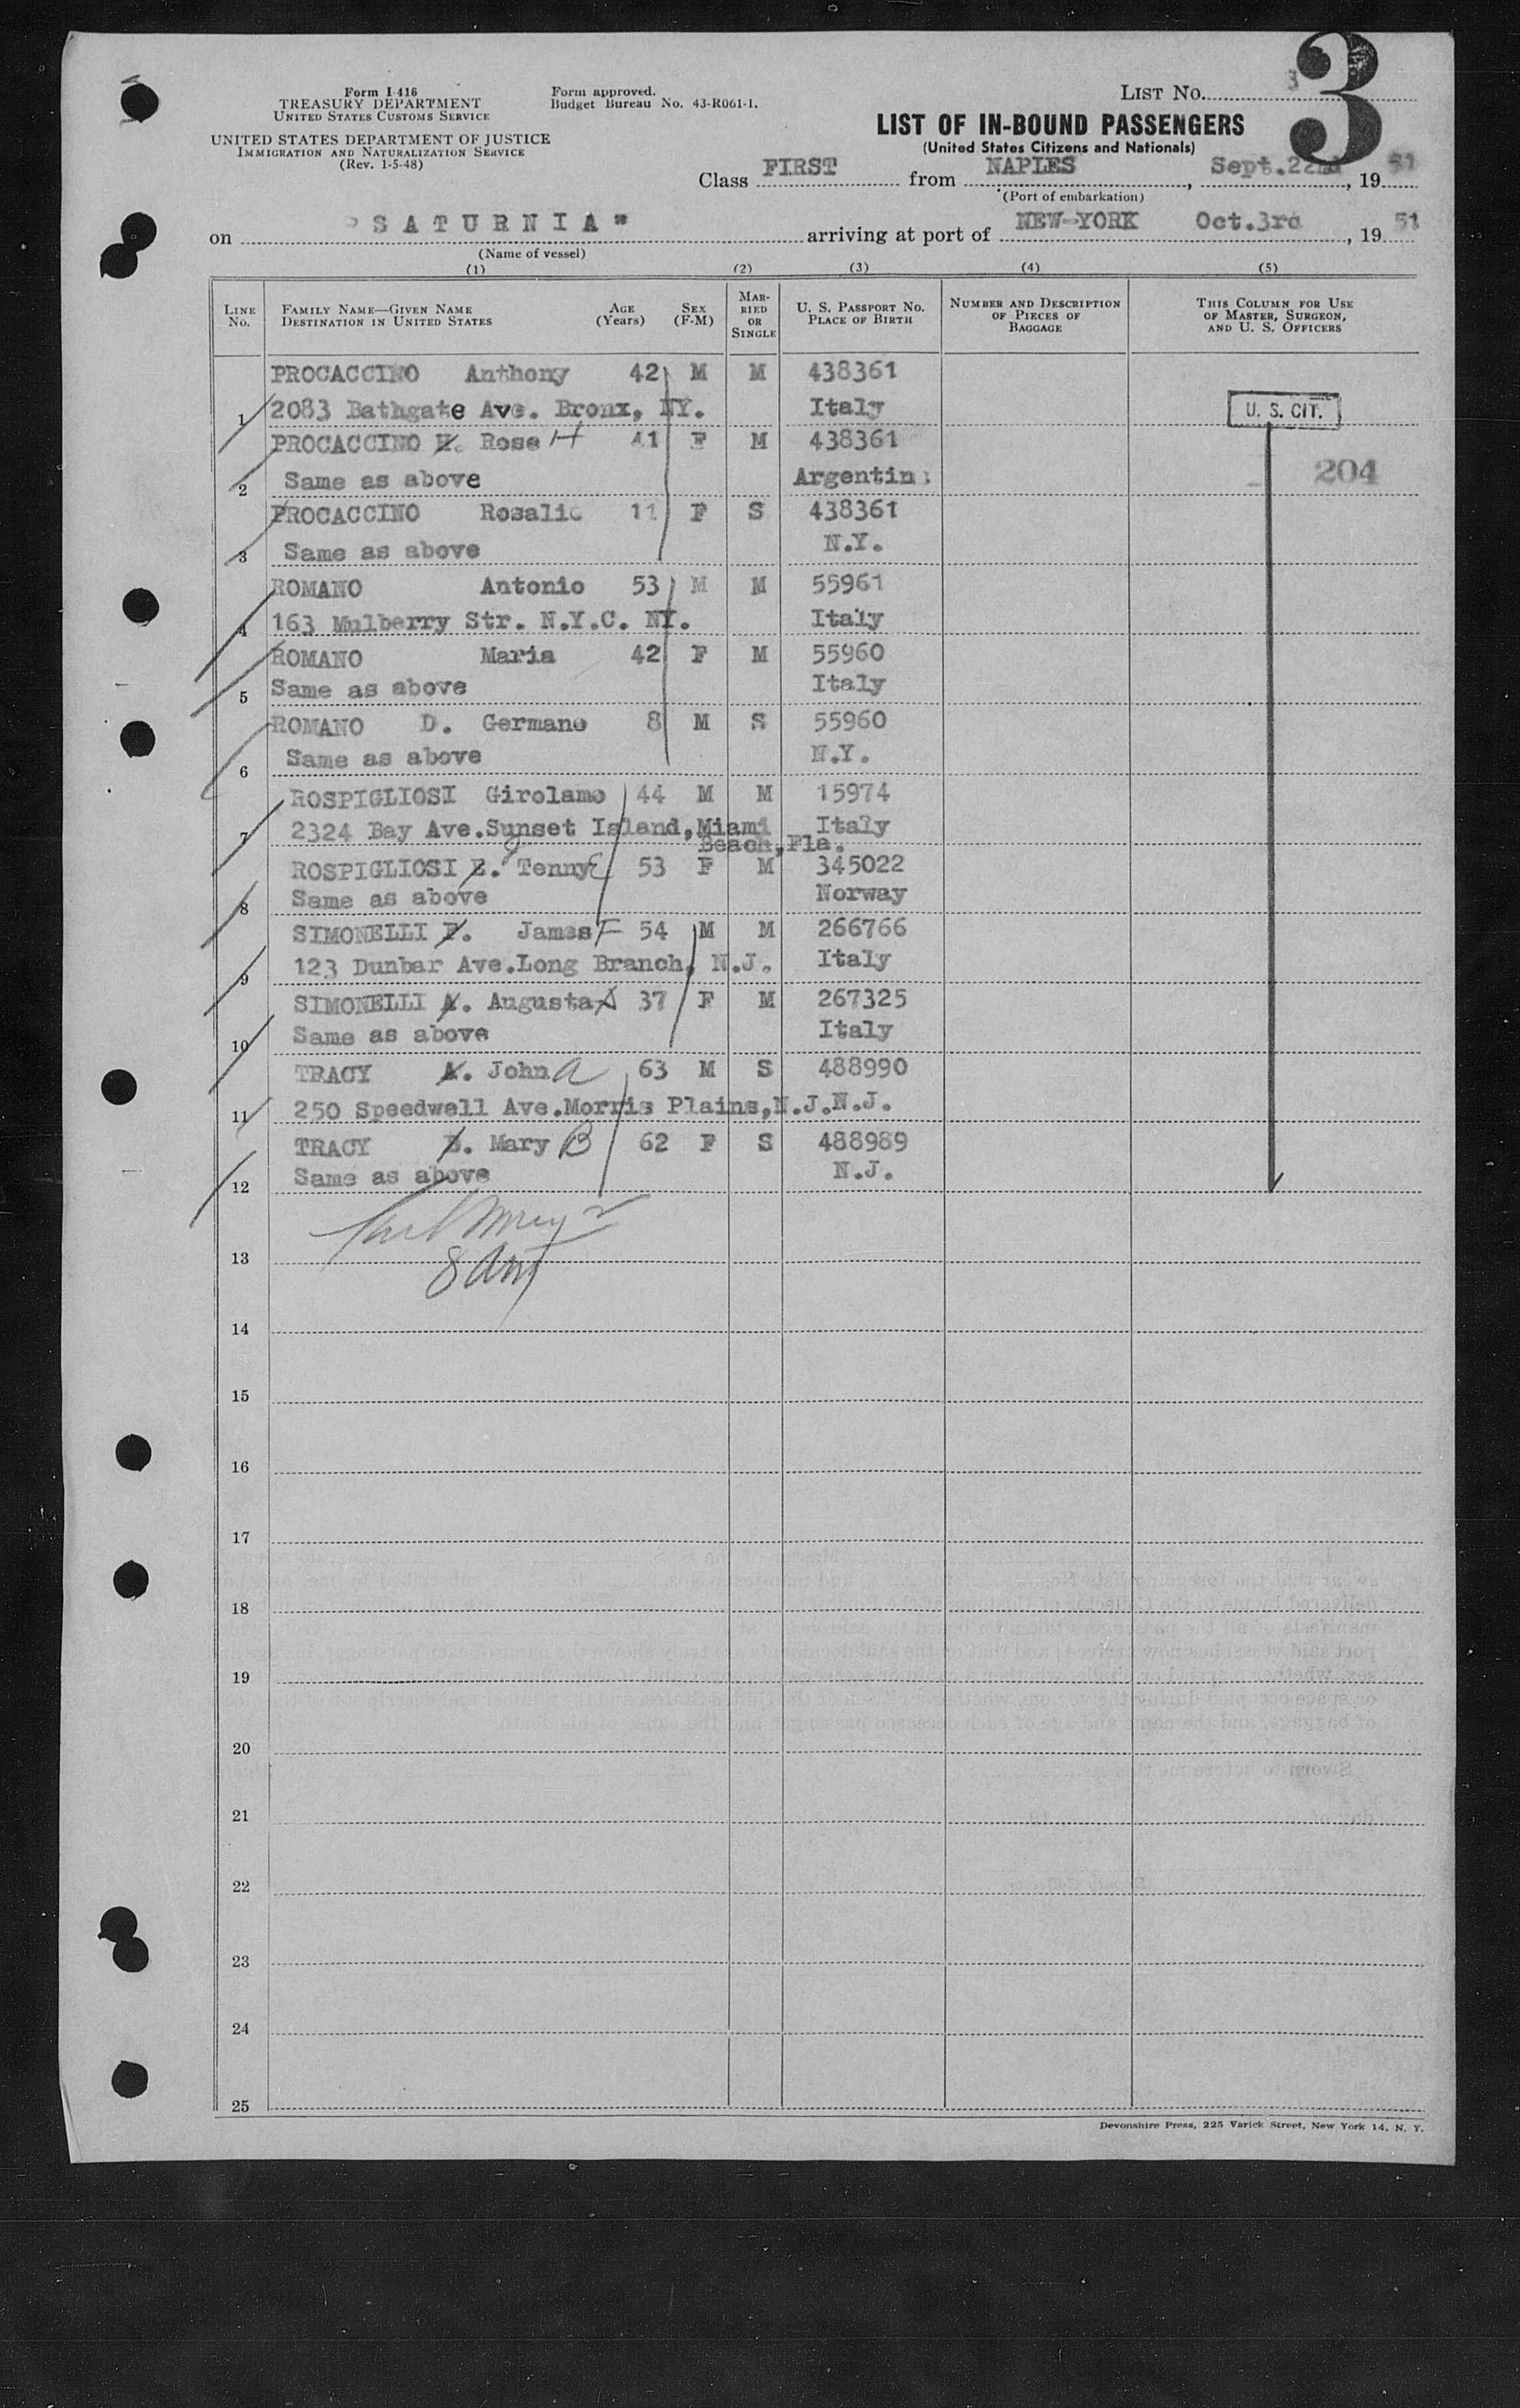 Form I 416
TREASURY DEPARTMENT
UNITED STATES CUSTOMS SERVICE
UNITED STATES DEPARTMENT OF JUSTICE
IMMIGRATION AND NATURALIZATION SERVICE
(Rev. 1-5-48)
Form approved.
Budget Bureau No. 43-R061-1.
LIST NO. 3
3
LIST OF IN-BOUND PASSENGERS
(United States Citizens and Nationals)
Class FIRST from NAPLES, Sept.22nd, 19 51
(Port of embarkation)
on "SATURNIA" arriving at port of NEW-YORK Oct.3rd, 19 51
(Name of vessel)
(1) (2) (3) (4) (5)
LINE NO. FAMILY NAME—GIVEN NAME DESTINATION IN UNITED STATES AGE (Years) SEX (F-M) MARRIED OR SINGLE U. S. PASSPORT NO. PLACE OF BIRTH NUMBER AND DESCRIPTION OF PIECES OF BAGGAGE THIS COLUMN FOR USE OF MASTER, SURGEON, AND U. S. OFFICERS
PROCACCINO Anthony 42 M M 438361
1 2083 Bathgate Ave. Bronx, NY. Italy U. S. CIT.
PROCACCINO H. Rose H 41 F M 438361
2 Same as above Argentina 204
PROCACCINO Rosalie 11 F S 438361
3 Same as above N.Y.
ROMANO Antonio 53 M M 55961
4 163 Mulberry Str. N.Y.C. NY. Italy
ROMANO Maria 42 F M 55960
5 Same as above Italy
ROMANO D. Germano 8 M S 55960
6 Same as above N.Y.
ROSPIGLIOSI Girolamo 44 M M 15974
7 2324 Bay Ave.Sunset Island,Miami Beach,Fla. Italy
ROSPIGLIOSI E. Tenny E 53 F M 345022
8 Same as above Norway
SIMONELLI F. James F 54 M M 266766
9 123 Dunbar Ave.Long Branch, N.J. Italy
SIMONELLI A. Augusta A 37 F M 267325
10 Same as above Italy
TRACY A. John A 63 M S 488990
11 250 Speedwell Ave.Morris Plains,N.J. N.J.
TRACY B. Mary B 62 F S 488989
12 Same as above N.J.
13
14
15
16
17
18
19
20
21
22
23
24
25
Devonshire Press, 225 Varick Street, New York 14, N. Y.